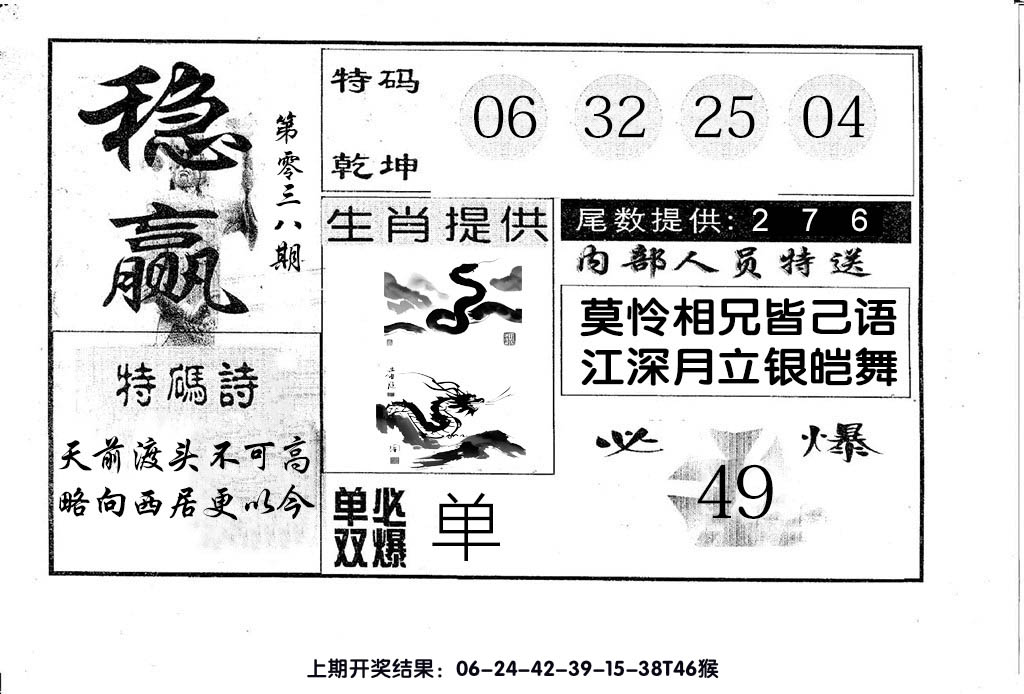 稳赢
第零三八期
特码
乾坤
06 32 25 04
生肖提供
尾数提供: 2 7 6
内部人员特送
莫怜相兄皆己语
江深月立银皑舞
特碼詩
天前渡头不可高
略向西居更以今
单双
必爆
单
必爆
49
上期开奖结果：06-24-42-39-15-38T46猴